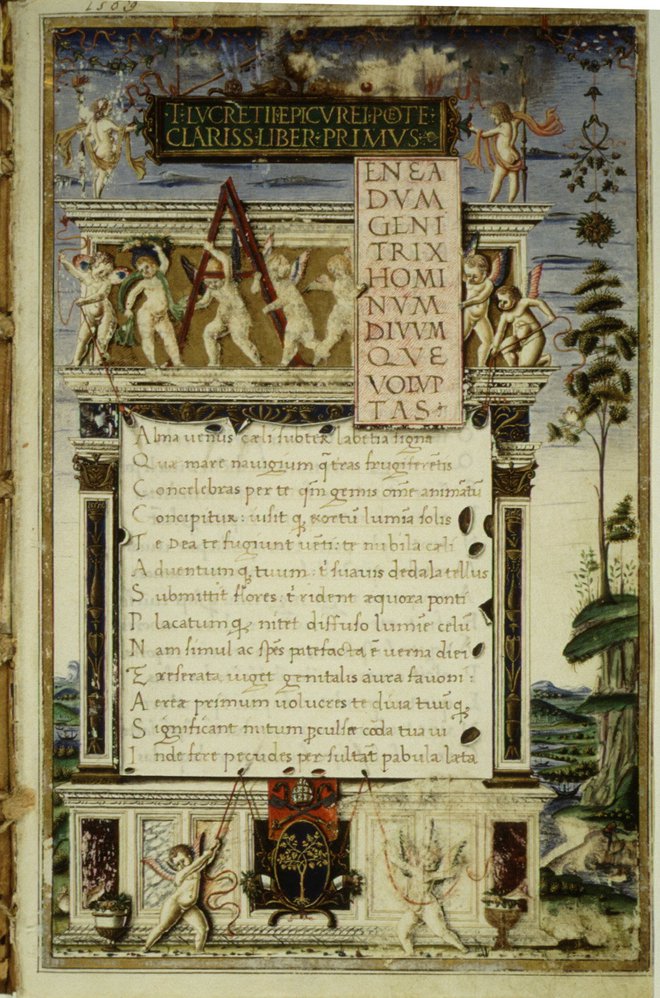 1569
T·LVCRETII·EPICVREI·POETE·
CLARISS·LIBER·PRIMVS·
A
ENEA
DVM
GENI
TRIX
HOMI
NVM
DIVVM
QVE
VOLVP
TAS
Alma venus cæli subter labentia signa
Quæ mare navigium q̃ tras frugiferẽtis
Concelebras per te qm̃ genus om̃e animãtũ
Concipitur: uisit q; exortũ lumĩa solis
Te Dea te fugiunt uẽti: te nubila cæli
Aduentumq; tuum: t' suauis dedala tellus
Submittit flores: t' rident æquora ponti
Placatumq; nitet diffuso lumĩe celũ
Nam simul ac spẽs patefacta ẽ verna diei
Et reserata uiget genitalis aura fauoni:
Aereæ primum uolucres te diua tuũq;
Significant initum pculsæ corda tua ui
Inde fere pecudes per sultãt pabula læta